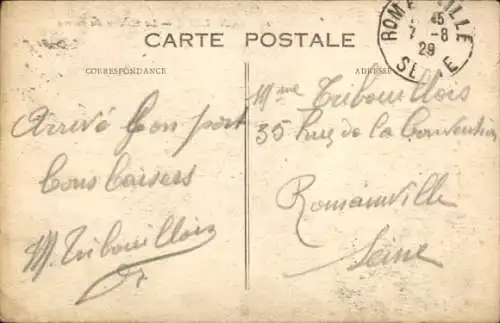 CARTE POSTALE
CORRESPONDANCE
ADRESSE
ROMAINVILLE
15
7-8
29
SEINE
Arrivé bon port
bons baisers
M. Tribouillois
Mme Tribouillois
35 Rue de la Convention
Romainville
Seine